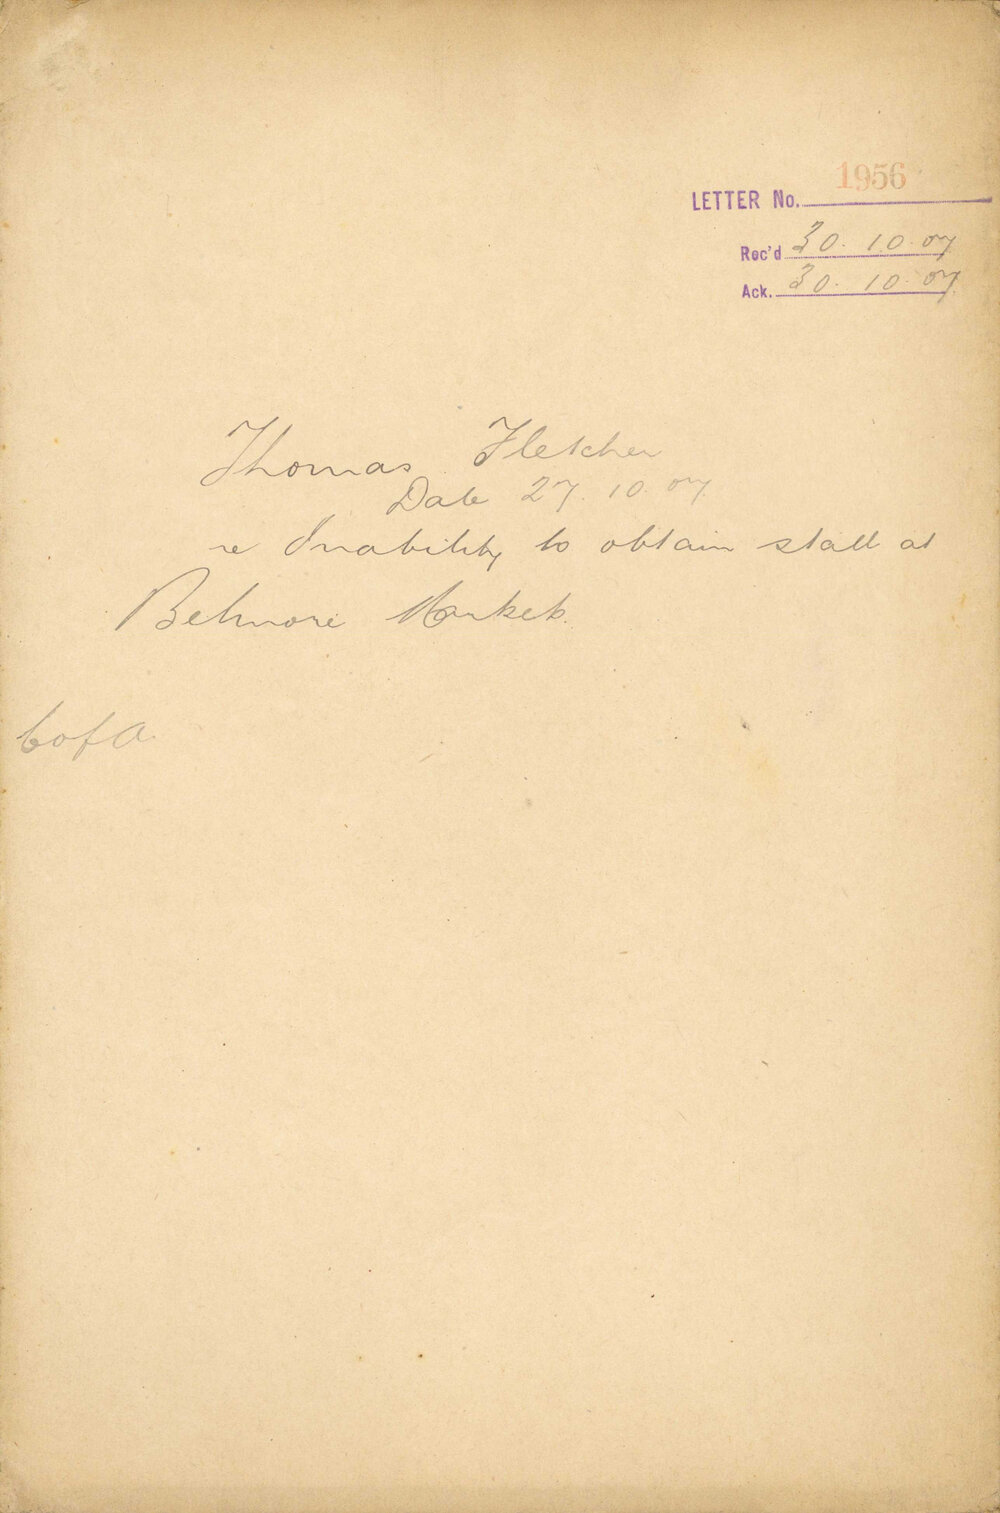 LETTER No. 1956
Rec'd 30.10.07
Ack. 30.10.07
Thomas Fletcher
Date 27.10.07
re Inability to obtain stall at
Belmore Markets.
C of A